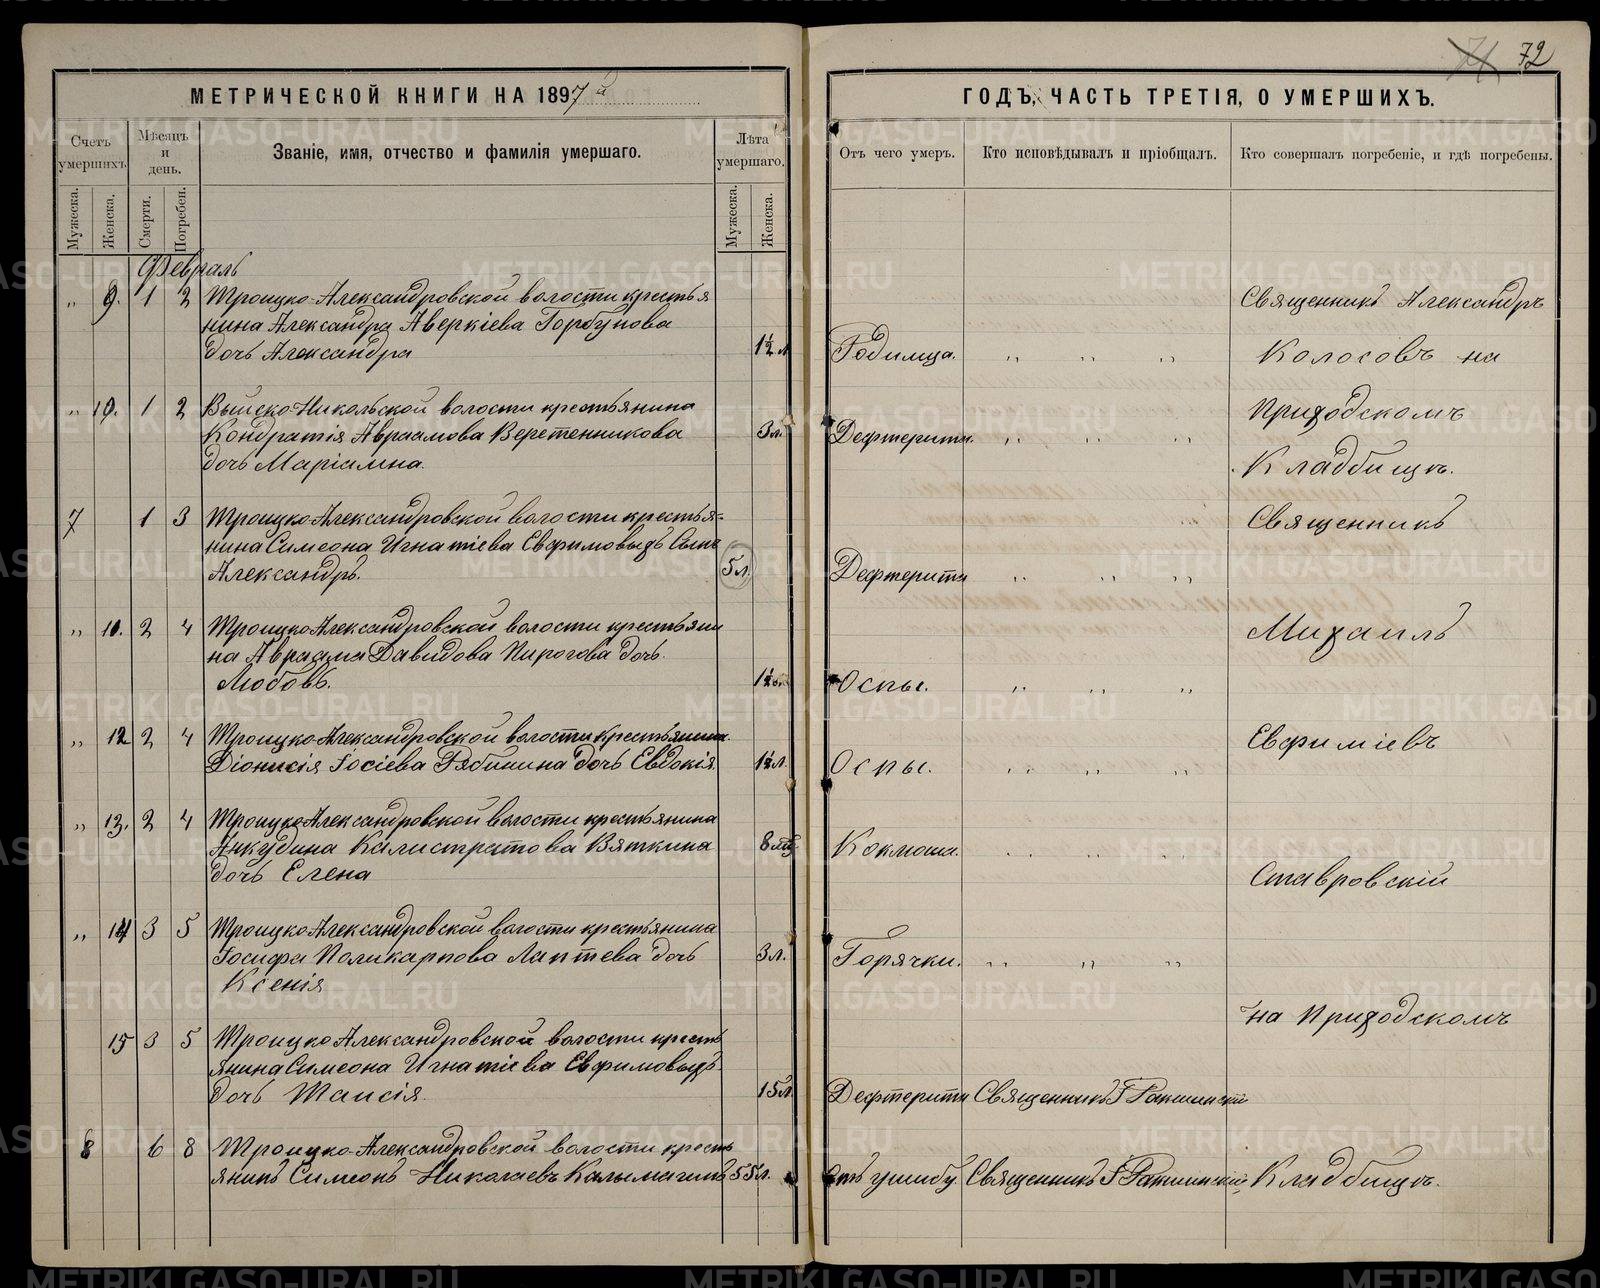 71 72
МЕТРИЧЕСКОЙ КНИГИ НА 1897й
ГОДЪ, ЧАСТЬ ТРЕТІЯ, О УМЕРШИХЪ.
Счетъ умершихъ.
Мужеска.
Женска.
Мѣсяцъ и день.
Смерти.
Погребен.
Званіе, имя, отчество и фамилія умершаго.
Лѣта умершаго.
Мужеска.
Женска.
Отъ чего умеръ.
Кто исповѣдывалъ и пріобщалъ.
Кто совершалъ погребеніе, и гдѣ погребены.
Февраль
„ 9. 1 2 Троицко-Александровской волости крестья
нина Александра Аверкіева Горбунова
дочь Александра 1½ л Родимца. „ „ „
Священникъ Александръ
Колосовъ на
Приходскомъ
Кладбищѣ.
„ 10. 1 2 Выйско-Никольской волости крестьянина
Кондратія Авраамова Веретенникова 3 л. Дефтерита. „ „ „
дочь Маріамна.
7 1 3 Троицко-Александровской волости крестья-
нина Симеона Игнатіева Евфимовыхъ Сынъ
Александръ. 5 л. Дефтерита „ „ „
Священникъ
Михаилъ
Евфиміевъ
Ставровскій
на Приходскомъ
Кладбищѣ.
„ 11. 2 4 Троицко Александровской волости крестьяни
на Авраама Давидова Пирогова дочь
Любовь. 1½ Оспы. „ „ „
„ 12 2 4 Троицко-Александровской волости крестьянина
Діонисія Іосіева Рябинина дочь Евдокія 1½ л. Оспы. „ „ „
„ 13. 2 4 Троицко Александровской волости крестьянина
Анкудина Калистратова Вяткина 8 мц Коклюша. „ „ „
дочь Елена
„ 14 3 5 Троицко Александровской волости крестьянина
Іосифа Поликарпова Лаптева дочь 3 л. Горячки. „ „ „
Ксенія
15 3 5 Троицко Александровской волости кресть
янина Симеона Игнатіева Евфимовыхъ
дочь Таисія. 15 л. Дефтерита Священникъ
8 6 8 Троицко-Александровской волости кресть
янинъ Симеонъ Николаевъ Калымагинъ 55 л. отъ ушибу Священникъ
METRIKI.GASO-URAL.RU